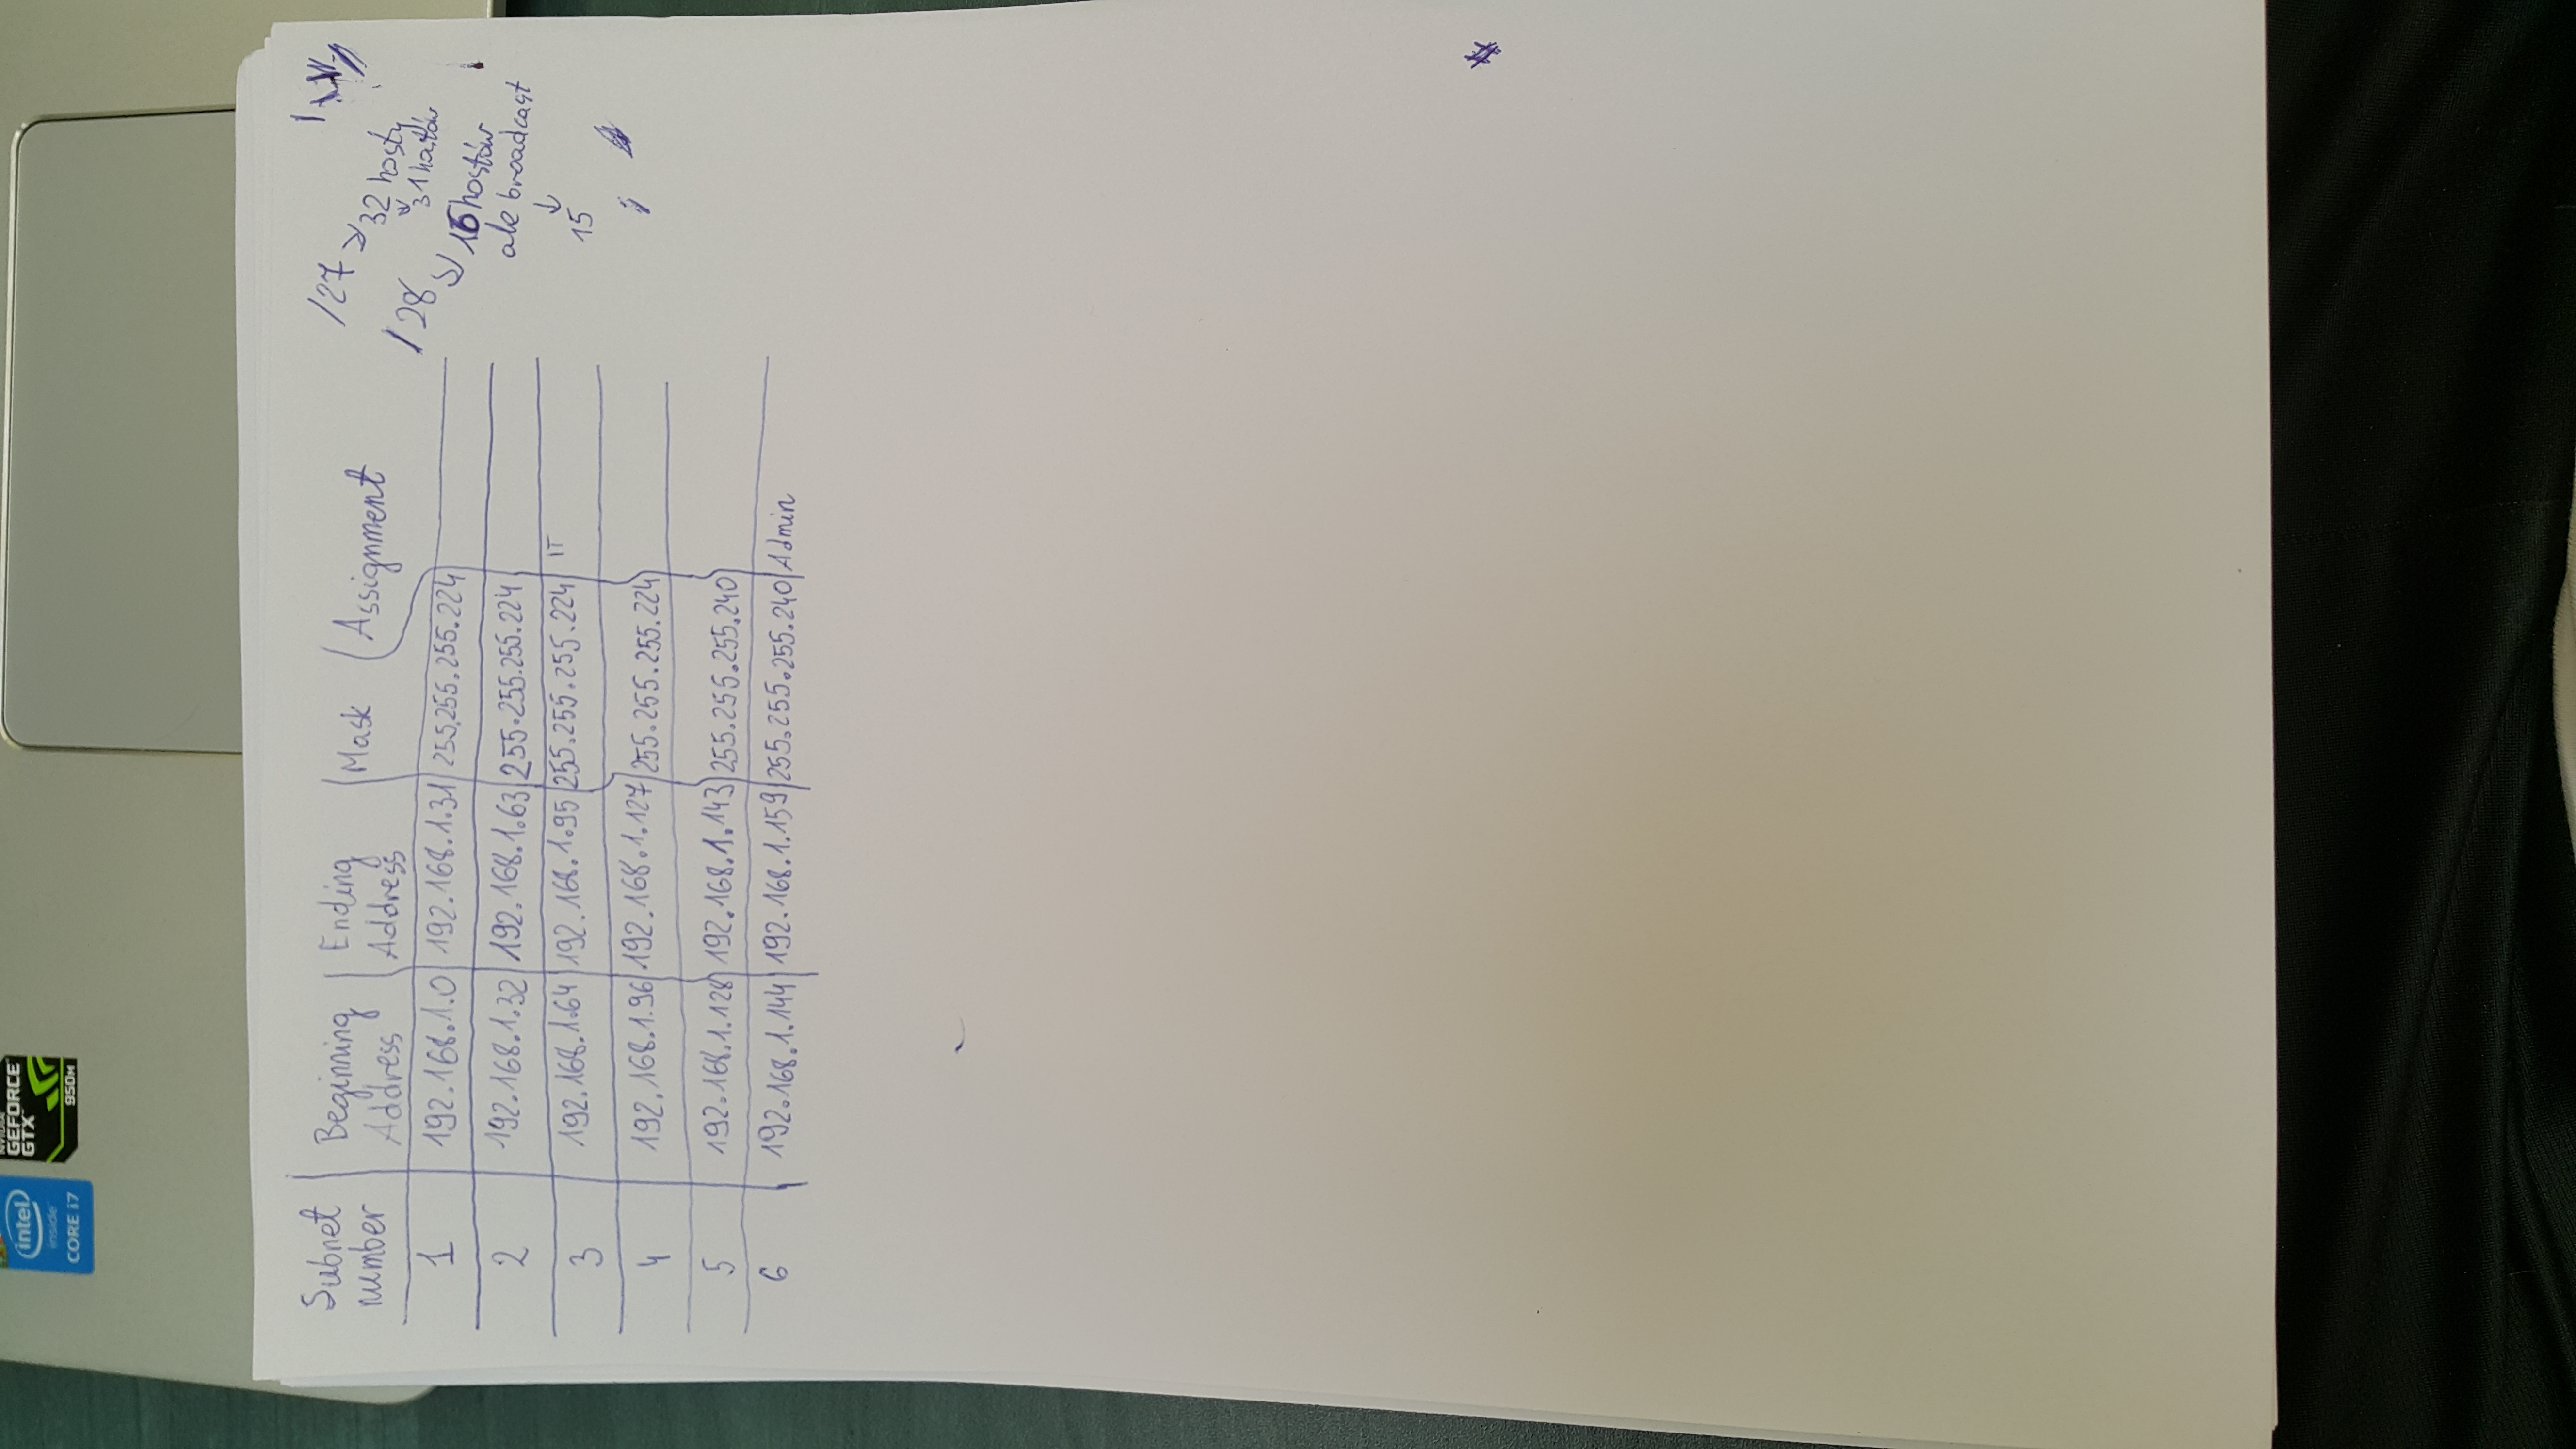 intel
inside
CORE i7
NVIDIA
GEFORCE
GTX
950M
Subnet number | Beginning Address | Ending Address | Mask | Assignment
1 | 192.168.1.0 | 192.168.1.31 | 255.255.255.224
2 | 192.168.1.32 | 192.168.1.63 | 255.255.255.224
3 | 192.168.1.64 | 192.168.1.95 | 255.255.255.224 | IT
4 | 192.168.1.96 | 192.168.1.127 | 255.255.255.224
5 | 192.168.1.128 | 192.168.1.143 | 255.255.255.240
6 | 192.168.1.144 | 192.168.1.159 | 255.255.255.240 | Admin
/27
32 hosty
31 hostów
/28
16 hostów
ale broadcast
15